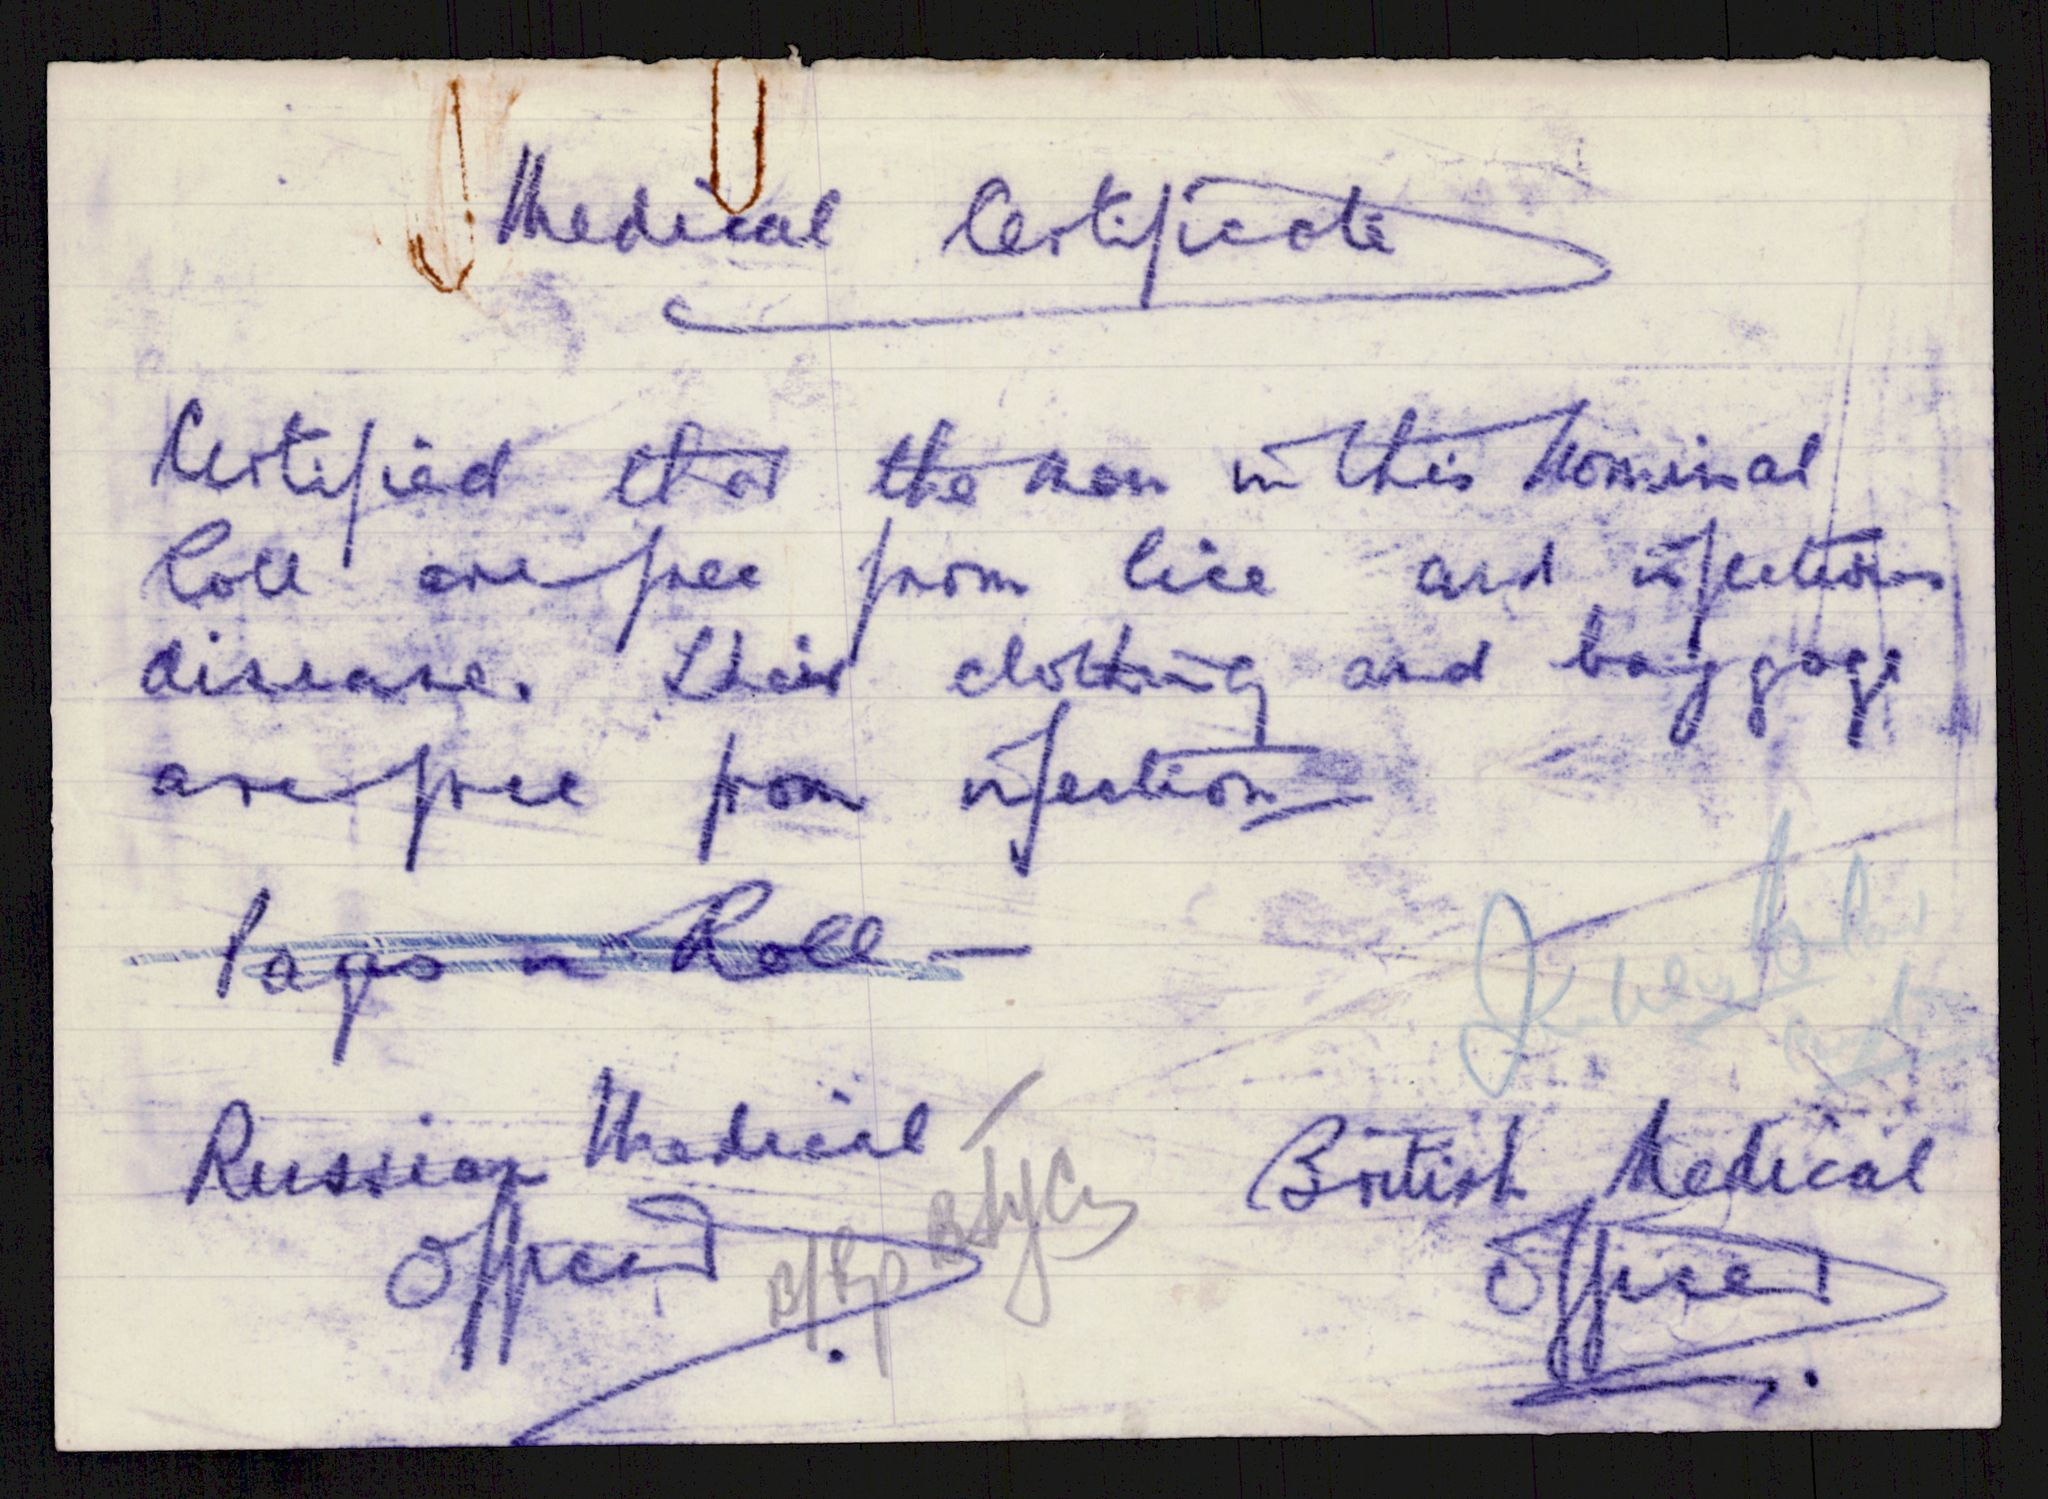 Medical Certificate
Certified that the men in this Nominal
Roll are free from lice and infectious
disease. Their clothing and baggage
are free from infection
Pages in Roll —
Russian Medical
Officer
British Medical
Officer